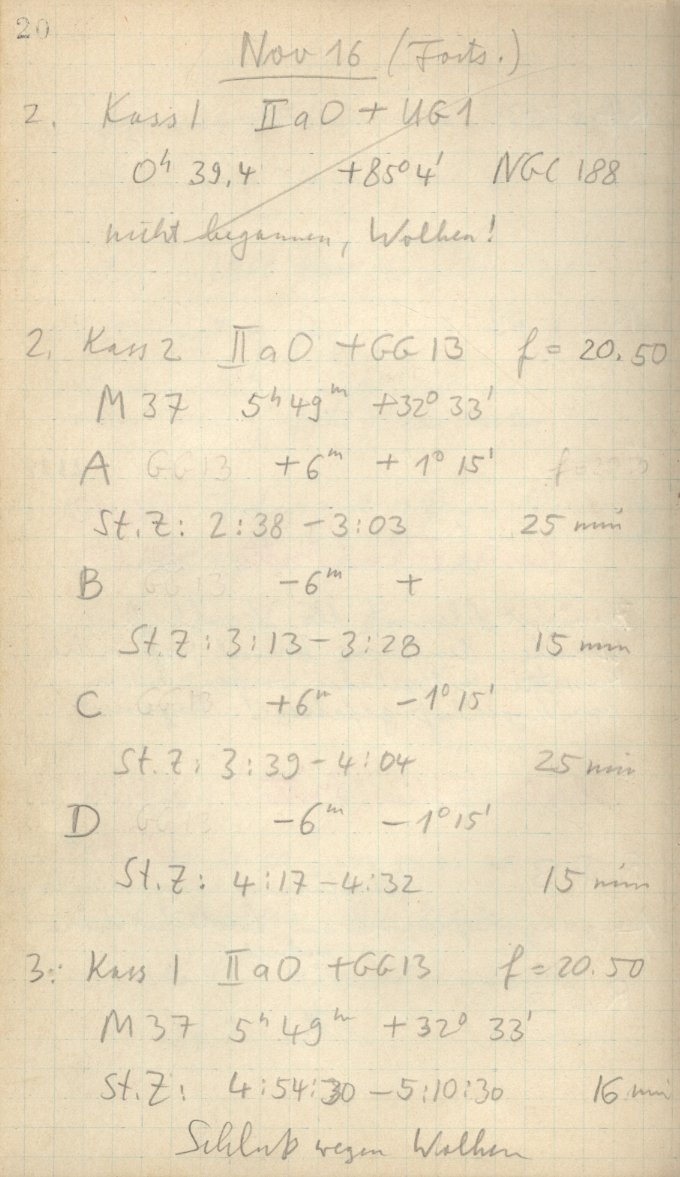 20
Nov 16 (Forts.)
2. Kass 1 IIaO + UG1
0ʰ 39,4 +85°4' NGC 188
nicht begonnen, Wolken!
2. Kass 2 IIaO + GG13 f = 20.50
M 37 5ʰ 49ᵐ +32° 33'
A GG13 +6ᵐ + 1° 15'
St.Z: 2:38 – 3:03 25 min
B GG13 –6ᵐ +
St.Z: 3:13 – 3:28 15 min
C GG13 +6ᵐ –1° 15'
St.Z: 3:39 – 4:04 25 min
D –6ᵐ –1° 15'
St.Z: 4:17 – 4:32 15 min
3: Kass 1 IIaO + GG13 f = 20.50
M 37 5ʰ 49ᵐ +32° 33'
St.Z: 4:54:30 – 5:10:30 16 min
Schluß wegen Wolken